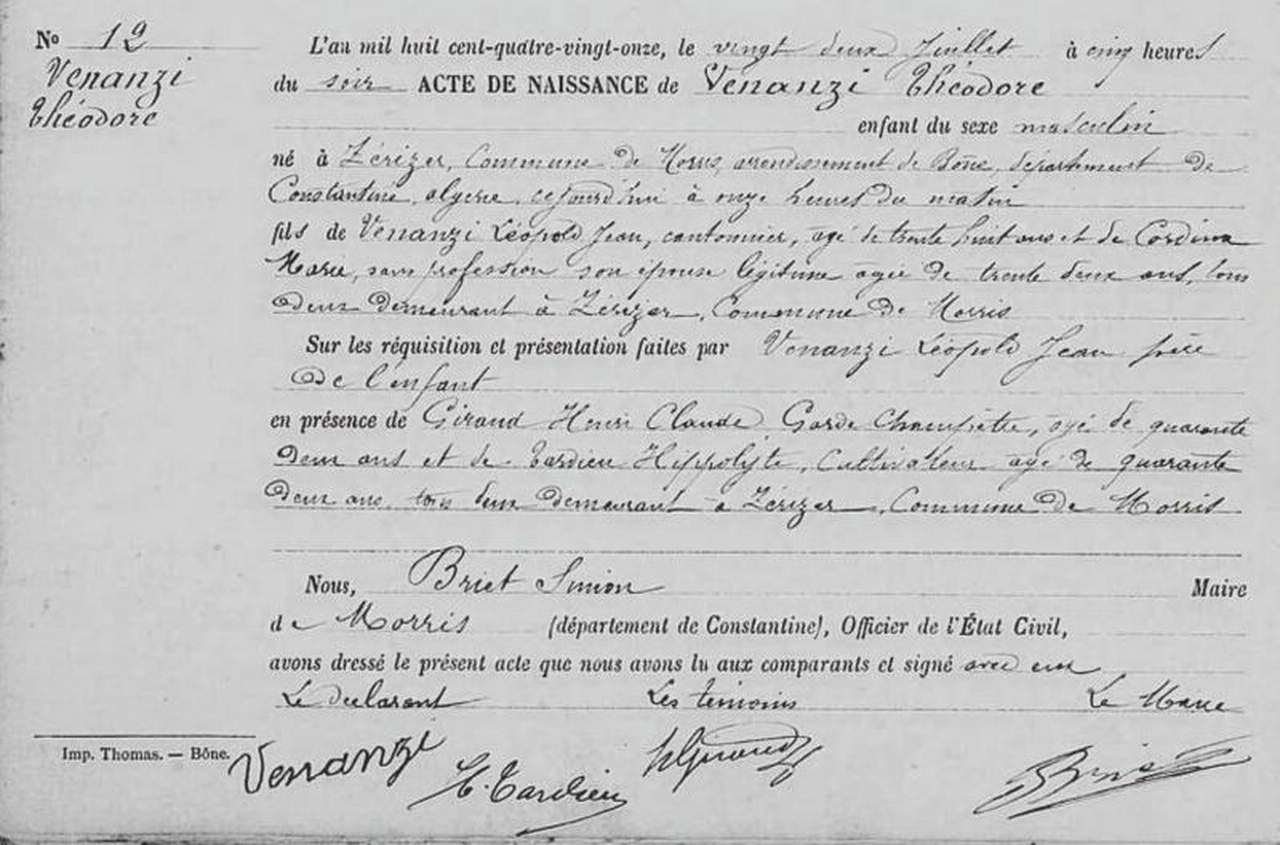 No 12
Venanzi
Théodore
L'an mil huit cent-quatre-vingt-onze, le vingt deux Juillet à cinq heures
du soir ACTE DE NAISSANCE de Venanzi Théodore
enfant du sexe masculin
né à Zérizer, Commune de Morris, arrondissement de Bône, département de
Constantine, algérie, cejourd'hui à onze heures du matin
fils de Venanzi Léopold Jean, cantonnier, agé de trente huit ans et de Cordina
Marie, sans profession son épouse légitime agée de trente deux ans, tous
deux demeurant à Zérizer, Commune de Morris
Sur les réquisition et présentation faites par Venanzi Léopold Jean père
de l'enfant
en présence de Giraud Henri Claude Garde Champêtre, agé de quarante
deux ans et de Tardieu Hippolyte, Cultivateur agé de quarante
deux ans, tous deux demeurant à Zérizer, Commune de Morris
Nous, Briet Simion Maire
de Morris (département de Constantine), Officier de l'État Civil,
avons dressé le présent acte que nous avons lu aux comparants et signé avec eux
Le déclarant Les témoins Le Maire
Imp. Thomas. — Bône.
Venanzi H. Tardieu hGiraud Briet